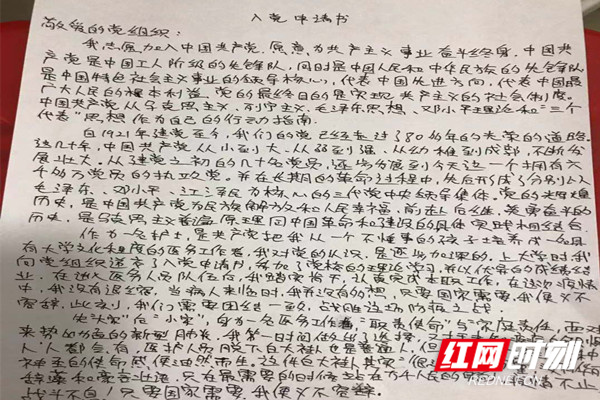 入党申请书
敬爱的党组织：
我志愿加入中国共产党，愿意为共产主义事业奋斗终身，中国共
产党是中国工人阶级的先锋队，同时是中国人民和中华民族的先锋队
是中国特色社会主义事业的领导核心，代表中国先进方向，代表中国最
广大人民的根本利益。党的最终目的是实现共产主义的社会制度。
中国共产党以马克思主义、列宁主义、毛泽东思想、邓小平理论和"三个
代表"思想作为自己的行动指南。
自1921年建党至今，我们的党已经走过了80多年的光荣的道路。
这几十年，中国共产党从小到大、从弱到强、从幼稚到成熟，不断发
展壮大。从建党之初的几十名党员，逐步发展到今天这一个拥有六
千多万党员的执政党。并在长期的革命过程中，先后形成了分别以
毛泽东、邓小平、江泽民为核心的三代党中央领导集体。党的光辉
历史，是中国共产党为民族解放和人民幸福，前赴后继，英勇奋斗的
历史，是马克思主义普遍原理同中国革命和建设的具体实践相结合
作为一名护士，是共产党把我从一个不懂事的孩子培养成一名具
有大学文化程度的医务工作者，我对党的认识，是逐步加深的。上大学时我
向党组织递交了入党申请书，参加了党校的理论学习，并以优异的成绩结
业，在进入医务人员队伍后，我踏实肯干，认真完成本职工作，在这次疫情
中，我没有退缩，当病人来临时，我没有多想，只要国家需要，我便义不
容辞，此刻，我们需要团结一致，战胜这场防疫之战
先"大家"后"小家"，身为一名医务工作者，"职责使命"与"家庭责任，面对
来势汹汹的新型肺炎，我第一时间做出了选择，
人人都会有，医护人员脱下白大褂也是普通人，但
神圣的使命感便油然而生，这件白大褂其实
辞藻和豪言壮语，只有最需要的时候站在万千人民的
战斗不息！只要国家需要，我便义不容辞。
红网时刻
REDNET.CN